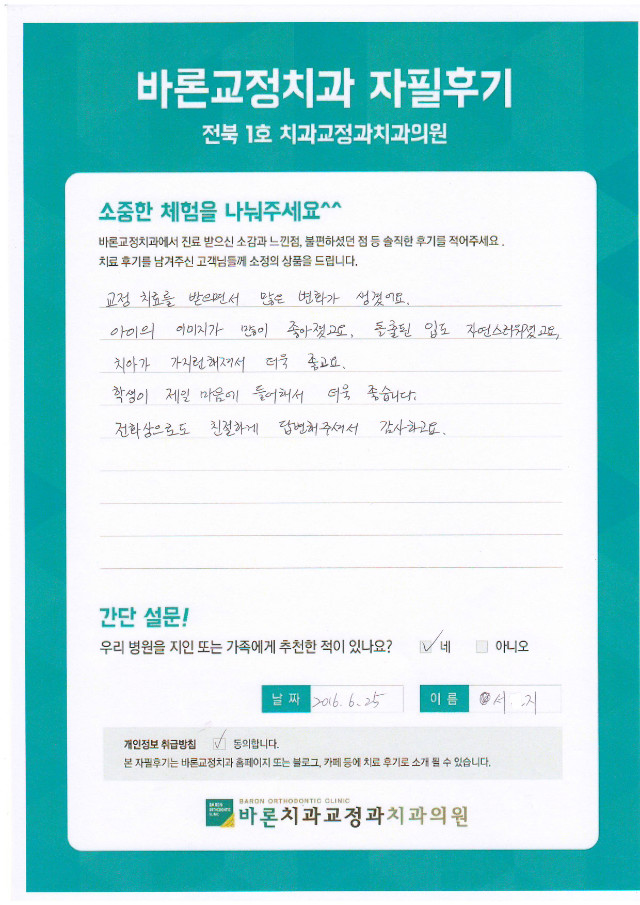 바론교정치과 자필후기
전북 1호 치과교정과치과의원
소중한 체험을 나눠주세요^^
바론교정치과에서 진료 받으신 소감과 느낀점, 불편하셨던 점 등 솔직한 후기를 적어주세요.
치료 후기를 남겨주신 고객님들께 소정의 상품을 드립니다.
교정 치료를 받으면서 많은 변화가 생겼어요.
아이의 이미지가 많이 좋아졌고요, 돌출된 입도 자연스러워졌고요,
치아가 가지런해져서 더욱 좋고요.
학생이 제일 마음에 들어해서 더욱 좋습니다.
전화상으로도 친절하게 답변해주셔서 감사하고요.
간단 설문!
우리 병원을 지인 또는 가족에게 추천한 적이 있나요? 네 아니오
날짜 2016. 6. 25 이름 서 지
개인정보 취급방침 동의합니다.
본 자필후기는 바론교정치과 홈페이지 또는 블로그, 카페 등에 치료 후기로 소개 될 수 있습니다.
BARON ORTHODONTIC CLINIC
바론치과교정과치과의원